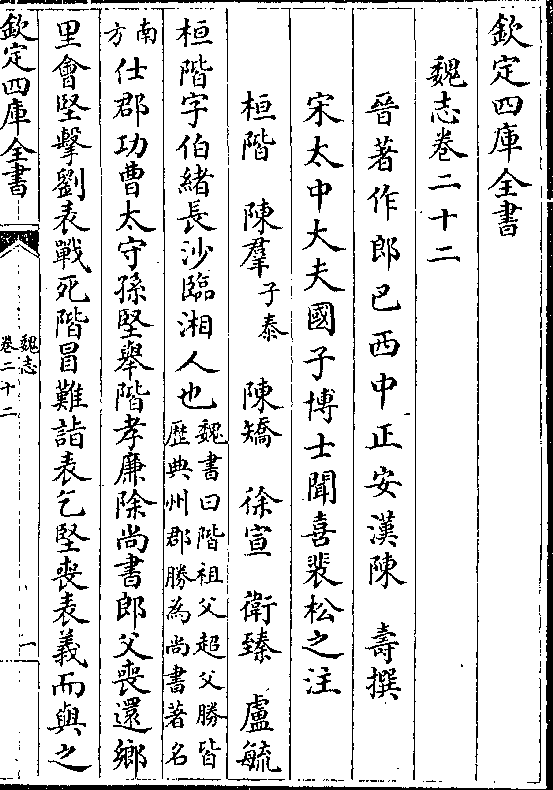 欽定四庫全書
魏志卷二十二
晉著作郎巴西中正安漢陳　壽撰
宋太中大夫國子博士聞喜裴松之注
桓階　陳羣子泰　陳矯　徐宣　衛臻　盧毓
桓階字伯緒長沙臨湘人也魏書曰階祖父超父勝皆歷典州郡勝為尚書著名
南方仕郡功曹太守孫堅舉階孝廉除尚書郎父喪還鄉
里會堅擊劉表戰死階冒難詣表乞堅喪表義而與之
欽定四庫全書
魏志
卷二十二
一